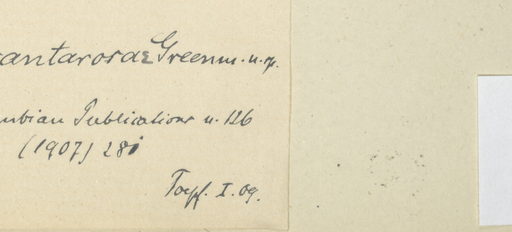 antarosae Greenm. n. sp.
mbian Publications n. 126
(1907) 281
I. 09.